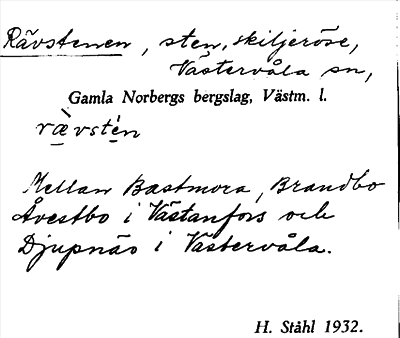 Rävstenen, sten, skiljeröse,
Västervåla sn,
Gamla Norbergs bergslag, Västm. l.
rævstén
Mellan Bastmora, Brandbo
Åvestbo i Västanfors och
Djupnäs i Västervåla.
H. Ståhl 1932.